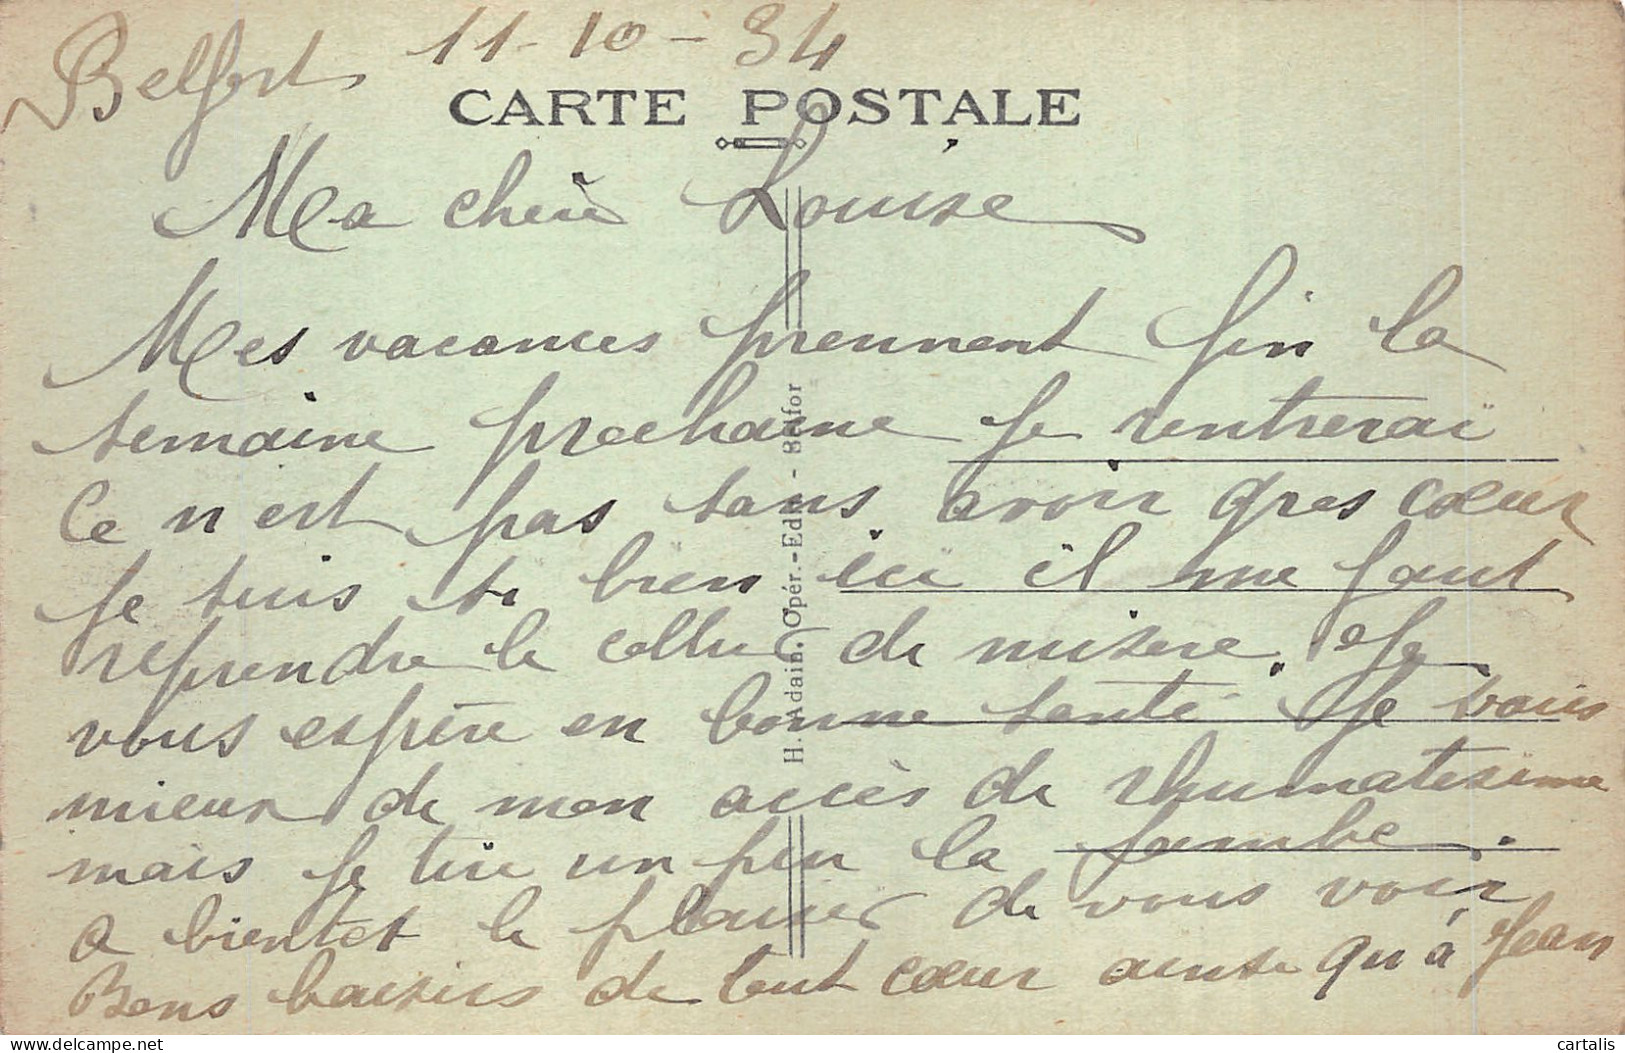 Belfort 11-10-34
CARTE POSTALE
Ma chère Louise
Mes vacances prennent fin la
semaine prochaine je rentrerai
Ce n'est pas sans avoir gros cœur
je suis si bien ici il me faut
reprendre le collier de misère. Je
vous espère en bonne santé je vais
mieux de mon accès de rhumatisme
mais je tire un peu la jambe.
a bientot le plaisir de vous voir
Bons baisers de tout cœur ainsi qu'à Jean
H. Adain. Opér.-Edit. - Belfor
cartalis
delcampe.net